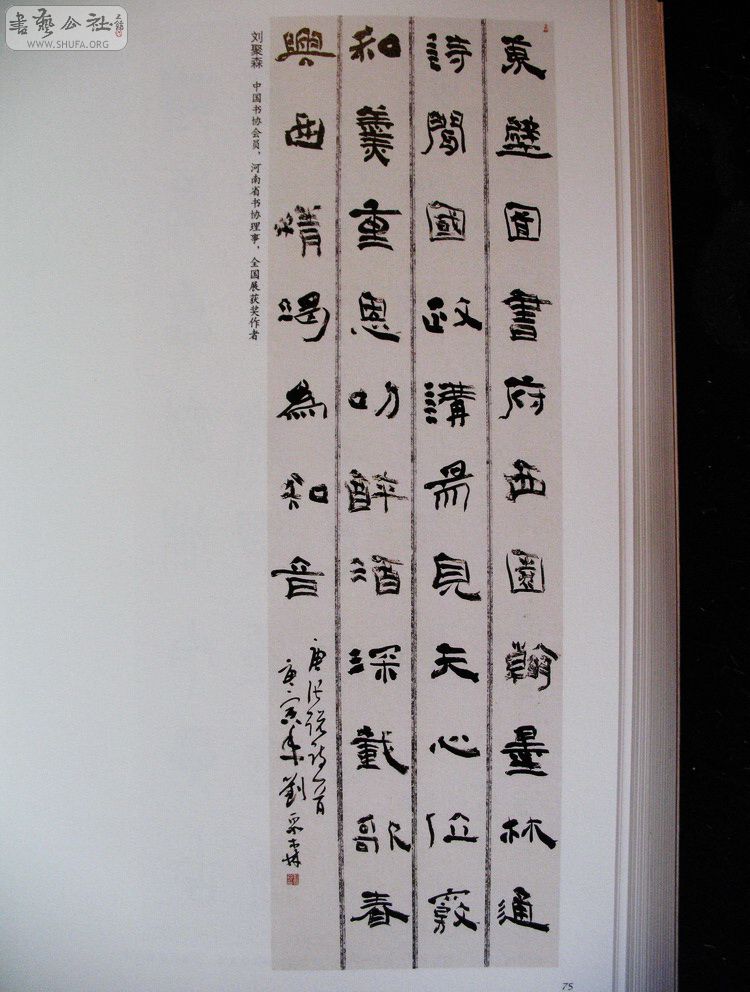 書藝公社
WWW.SHUFA.ORG
東壁圖書府西園翰墨林通
詩聞國政講易見天心位竊
和羹重恩叨醉酒深載歌春
興曲情竭為知音
唐張說詩一首
庚寅年劉聚森
刘聚森 中国书协会员,河南省书协理事,全国展获奖作者
75